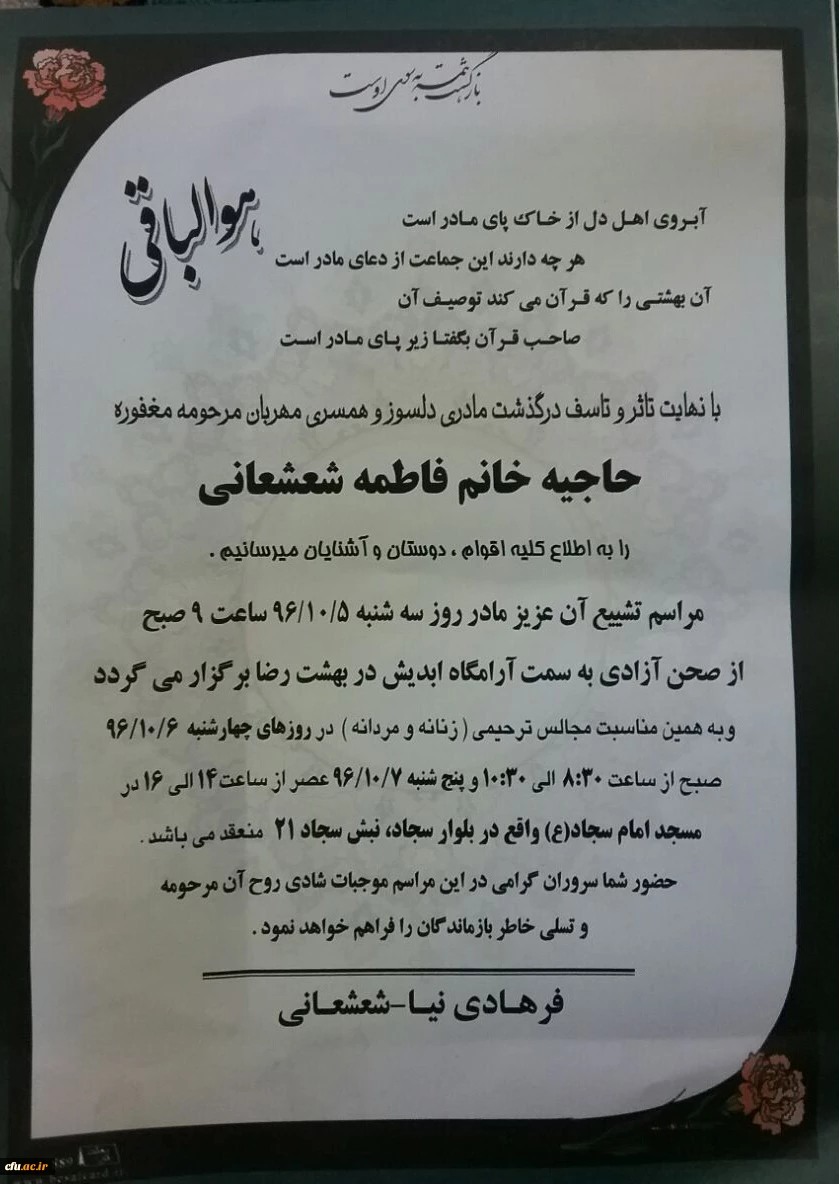 بازگشت همه به سوی اوست
هوالباقی
آبروی اهل دل از خاک پای مادر است
هر چه دارند این جماعت از دعای مادر است
آن بهشتی را که قرآن می کند توصیف آن
صاحب قرآن بگفتا زیر پای مادر است
با نهایت تاثر و تاسف درگذشت مادری دلسوز و همسری مهربان مرحومه مغفوره
حاجیه خانم فاطمه شعشعانی
را به اطلاع کلیه اقوام ، دوستان و آشنایان میرسانیم .
مراسم تشییع آن عزیز مادر روز سه شنبه ۹۶/۱۰/۵ ساعت ۹ صبح
از صحن آزادی به سمت آرامگاه ابدیش در بهشت رضا برگزار می گردد
و به همین مناسبت مجالس ترحیمی ( زنانه و مردانه ) در روزهای چهارشنبه ۹۶/۱۰/۶
صبح از ساعت ۸:۳۰ الی ۱۰:۳۰ و پنج شنبه ۹۶/۱۰/۷ عصر از ساعت ۱۴ الی ۱۶ در
مسجد امام سجاد(ع) واقع در بلوار سجاد، نبش سجاد ۲۱ منعقد می باشد .
حضور شما سروران گرامی در این مراسم موجبات شادی روح آن مرحومه
و تسلی خاطر بازماندگان را فراهم خواهد نمود .
فرهادی نیا-شعشعانی
cfu.ac.ir